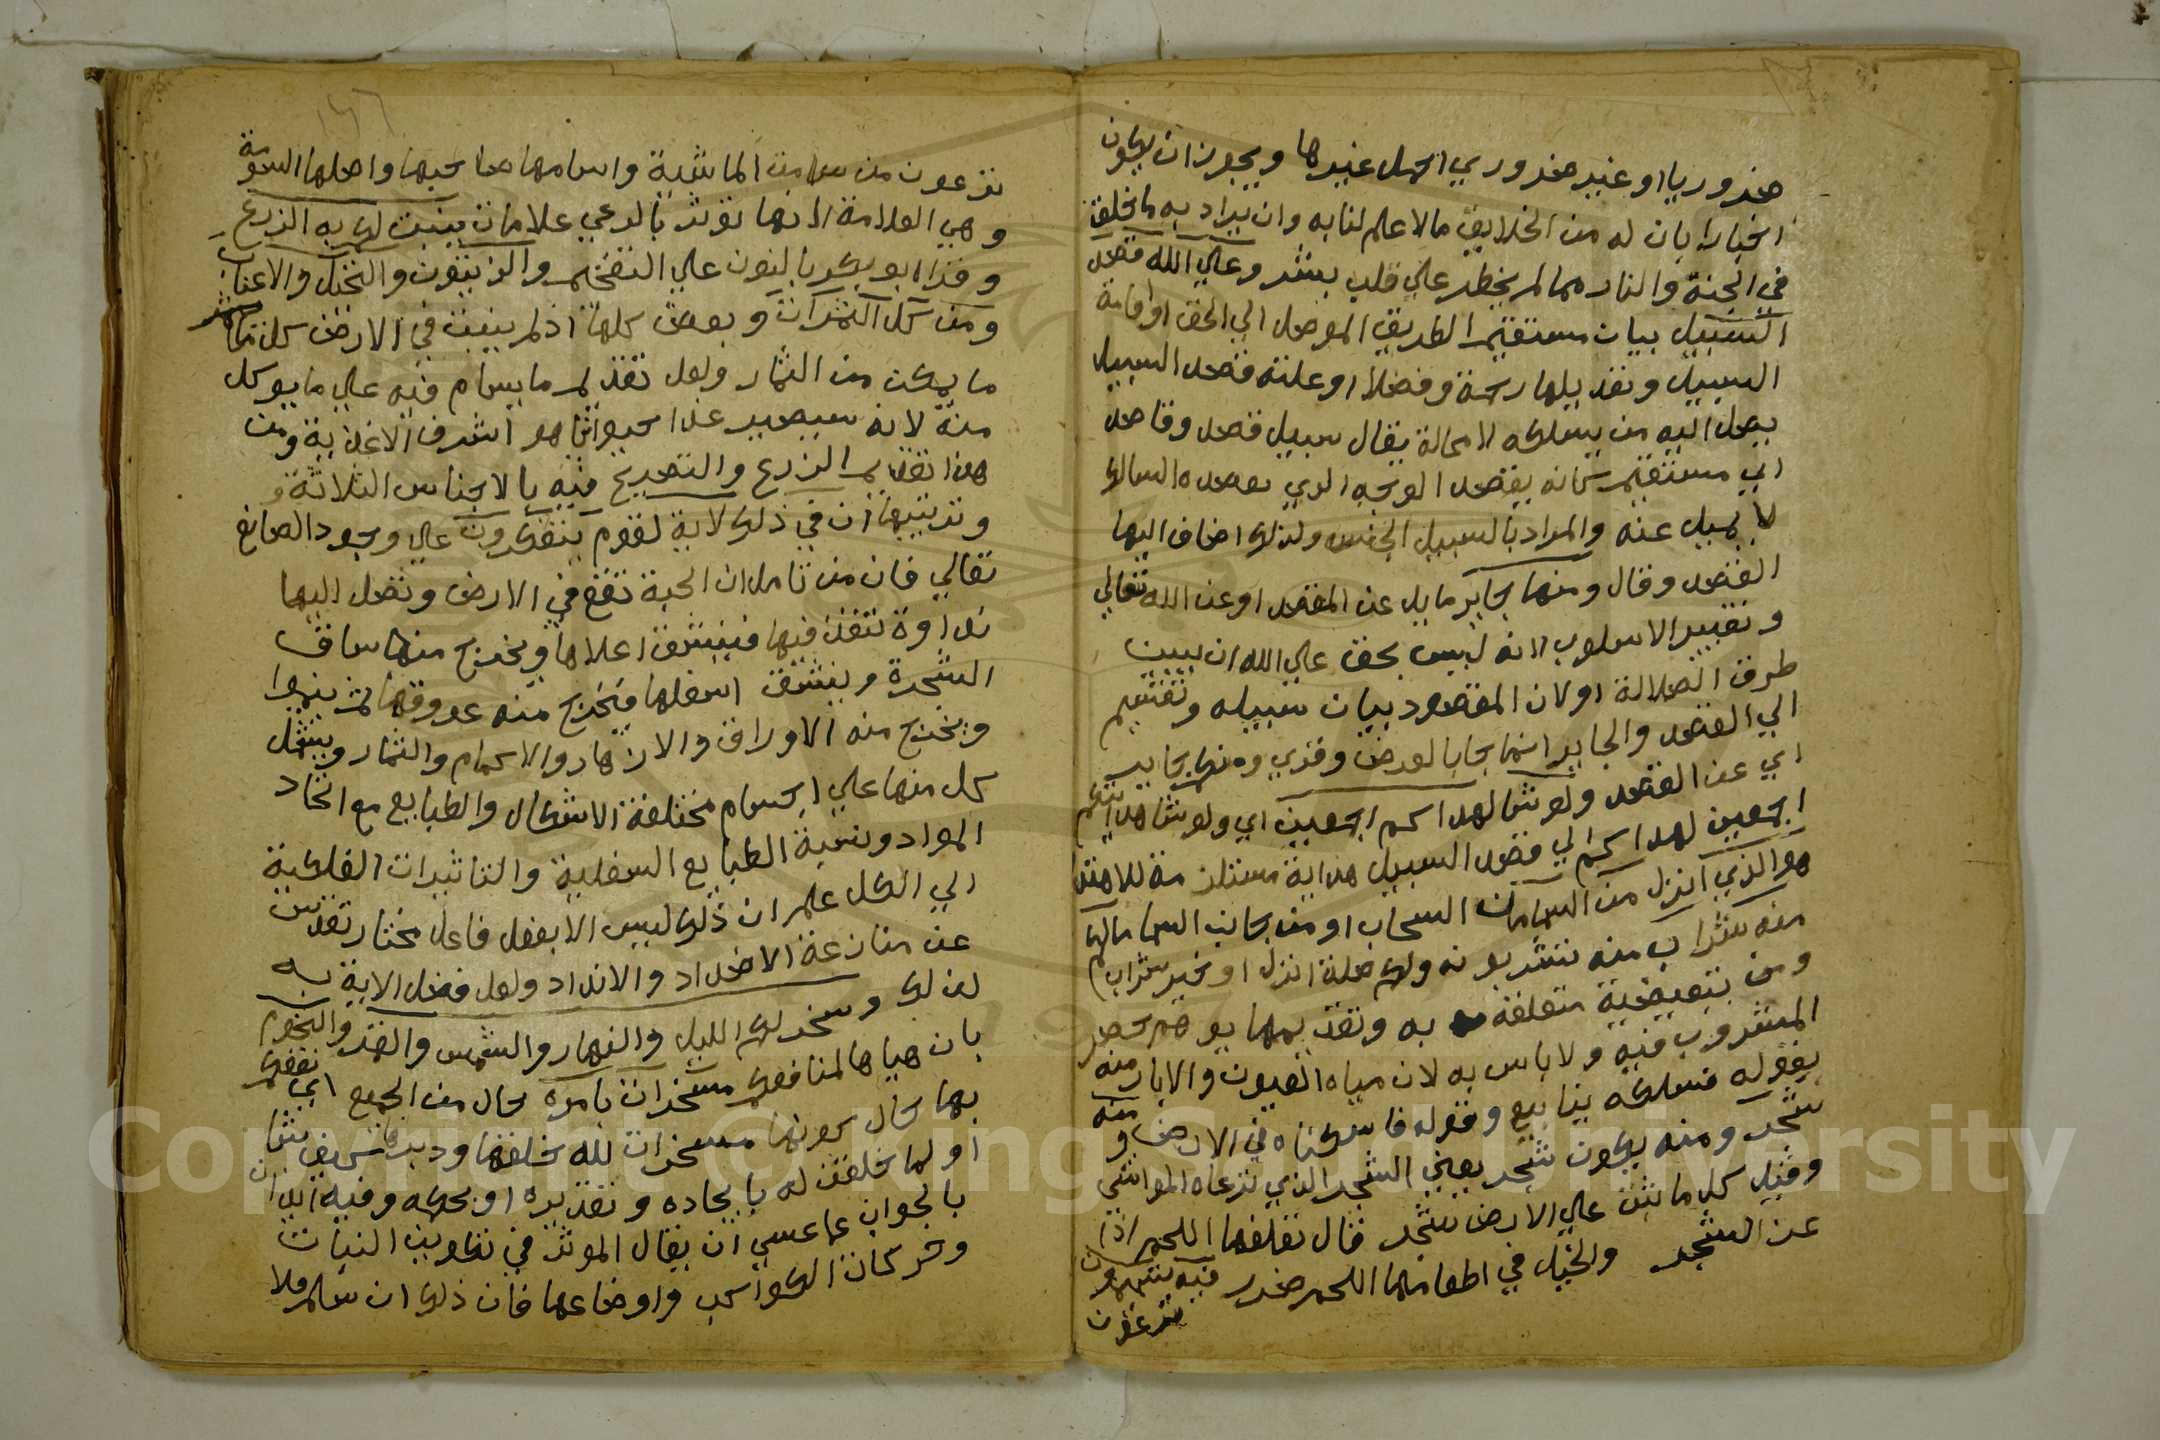 ضروريا او غير ضروري اجمل غيرها ويجوز ان يكون
اخبارا بان له من الخلايق مالا علم لنا به وان يراد به ما خلق
في الجنة والنار مما لم يخطر علي قلب بشر وعلي الله قصد
السبيل بيان مستقيم الطريق الموصل الي الحق او اقامة
السبيل وتعديلها رحمة وفضلا او عليه قصد السبيل
يصل اليه من يسلكه لا محالة يقال سبيل قصد وقاصد
اي مستقيم كانه يقصد الوجه الذي يقصده السالك
لا يميل عنه والمراد بالسبيل الجنس ولذلك اضاف اليها
القصد وقال ومنها جاير مايل عن القصد او عن الله تعالي
وتغيير الاسلوب لانه ليس بحق علي الله ان يبين
طرق الضلالة او لان المقصود بيان سبيله وتقسيم
الي القصد والجاير انما جا بالعرض وقري ومنكم جاير
اي عن القصد ولو شا لهداكم اجمعين اي ولو شا هدايتكم
اجمعين لهداكم الي قصد السبيل هداية مستلزمة للاهتدا
هو الذي انزل من السما من السحاب او من جانب السما ما لكم
منه شراب منه تشربونه ولكم صلة انزل او خبر شراب
ومن تبعيضية متعلقة به وتقديمها يوهم حصر
المشروب فيه ولا باس به لان مياه العيون والابار منه
بقوله فسلكه ينابيع وقوله فاسكناه في الارض ومنه
شجر ومنه يكون شجر يعني الشجر الذي ترعاه المواشي
وقيل كل ما نبت علي الارض شجر قال نعلفها اللحم اذا
عز الشجر والخيل في اطعامها اللحم ضرر فيه تسيمون
ترعون
١٤٦
ترعون من سامت الماشية واسامها صاحبها واصلها السومة
وهي العلامة لانها توثر بالرعي علامات ينبت لكم به الزرع
وقرا ابو بكر بالنون علي التفخيم والزيتون والنخيل والاعناب
ومن كل الثمرات وبعض كلها اذ لم ينبت في الارض كل ما
ما يمكن من الثمار ولعل تقديم ما يسام فيه علي ما يوكل
منه لانه سيصير غذا حيوانيا هو اشرف الاغذية ومن
هذا تقديم الزرع والتصريح فيه بالاجناس الثلاثة و
وترتيبها ان في ذلك لاية لقوم يتفكرون علي وجود الصانع
تعالي فان من تامل ان الحبة تقع في الارض وتصل اليها
نداوة تنفذ فيها فينشق اعلاها ويخرج منها ساق
الشجرة وينشق اسفلها فيخرج منه عروقها ثم ينموا
ويخرج منه الاوراق والازهار والاكمام والثمار ويشتمل
كل منها علي اجسام مختلفة الاشكال والطبايع مع اتحاد
المواد ونسبة الطبايع السفلية والتاثيرات الفلكية
الي الكل علم ان ذلك ليس الا بفعل فاعل مختار تقدس
عن منازعة الاضداد والانداد ولعل فصل الاية به
لذلك وسخر لكم الليل والنهار والشمس والقمر والنجوم
بان هياها لمنافعكم مسخرات بامره حال من الجميع اي نفعكم
بها حال كونها مسخرات لله خلقها ودبرها كيف شا
او لما خلقن له بايجاده وتقديره او بحكمه وفيه ايذان
بالجواب عما عسي ان يقال الموثر في تكوين النبات
وحركات الكواكب واوضاعها فان ذلك ان سلم فلا